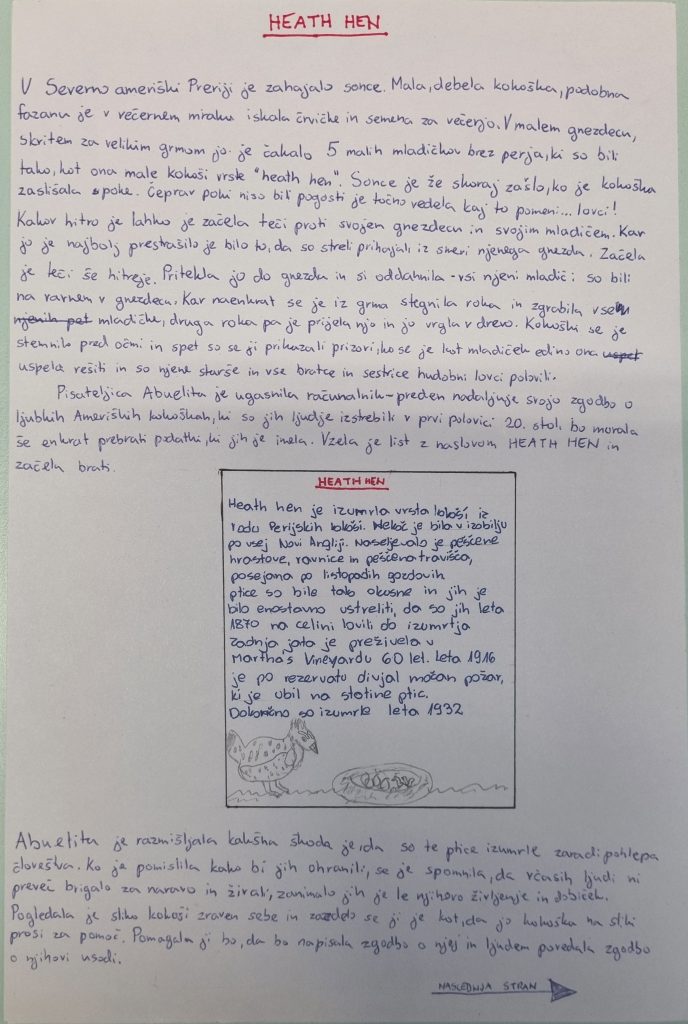 HEATH HEN
V Severno ameriški Preriji je zahajalo sonce. Mala, debela kokoška, podobna
fazanu je v večernem mraku iskala črvičke in semena za večerjo. V malem gnezdecu,
skritem za velikim grmom jo je čakalo 5 malih mladičkov brez perja, ki so bili
tako, kot ona male kokoši vrste "heath hen". Sonce je že skoraj zašlo, ko je kokoška
zaslišala poke. Čeprav poki niso bili pogosti je točno vedela kaj to pomeni... lovci!
Kakor hitro je lahko je začela teči proti svojem gnezdecu in svojim mladičem. Kar
jo je najbolj prestrašilo je bilo to, da so streli prihajali iz smeri njenega gnezda. Začela
je teči še hitreje. Pritekla je do gnezda in si oddahnila - vsi njeni mladiči so bili
na varnem v gnezdecu. Kar naenkrat se je iz grma stegnila roka in zgrabila vse
njenih pet mladičke, druga roka pa je prijela njo in jo vrgla v drevo. Kokoški se je
stemnilo pred očmi in spet so se ji prikazali prizori, ko se je kot mladiček edino ona uspel
uspela rešiti in so njene starše in vse bratce in sestrice hudobni lovci polovili.
Pisateljica Abuelita je ugasnila računalnik - preden nadaljuje svojo zgodbo o
ljubkih Ameriških kokoškah, ki so jih ljudje iztrebili v prvi polovici 20. stol. bo morala
še enkrat prebrati podatki, ki jih je imela. Vzela je list z naslovom HEATH HEN in
začela brati.
HEATH HEN
Heath hen je izumrla vrsta kokoši iz
rodu Perijskih kokoši. Nekoč je bila v izobilju
po vsej Novi Angliji. Naseljevalo je peščene
hrastove, ravnice in peščena travišča,
posejana po listopadih gozdovih
ptice so bile tako okusne in jih je
bilo enostavno ustreliti, da so jih leta
1870 na celini lovili do izumrtja
zadnja jata je preživela v
Martha's Vineyardu 60 let. Leta 1916
je po rezervatu divjal močan požar,
ki je ubil na stotine ptic.
Dokončno so izumrle leta 1932
Abuelita je razmišljala kakšna škoda je, da so te ptice izumrle zaradi pohlepa
človeštva. Ko je pomislila kako bi jih ohranili, se je spomnila, da včasih ljudi ni
preveč brigalo za naravo in živali, zanimalo jih je le njihovo življenje in dobiček.
Pogledala je sliko kokoši zraven sebe in zazdelo se ji je kot, da jo kokoška na sliki
prosi za pomoč. Pomagala ji bo, da bo napisala zgodbo o njej in ljudem povedala zgodbo
o njihovi usodi.
NASLEDNJA STRAN